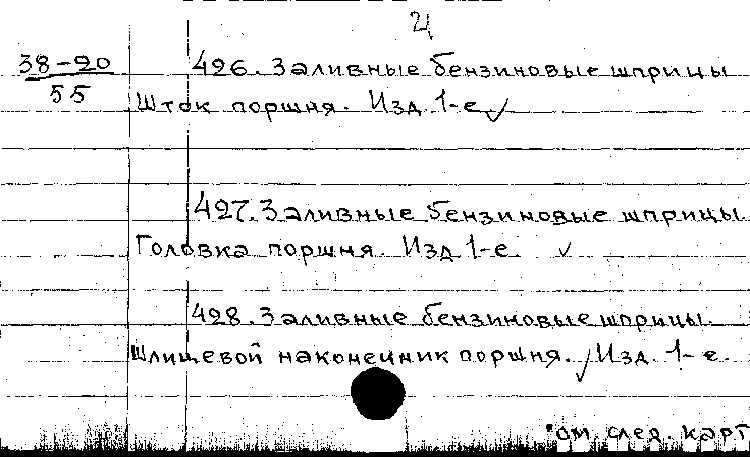 ч
38-20
55
426. Заливные бензиновые шприцы
Шток поршня. Изд. 1-е
427. Заливные бензиновые шприцы.
Головка поршня. Изд 1-е.
428. Заливные бензиновые шприцы.
Шлицевой наконечник поршня. Изд. 1-е.
см. след. карт